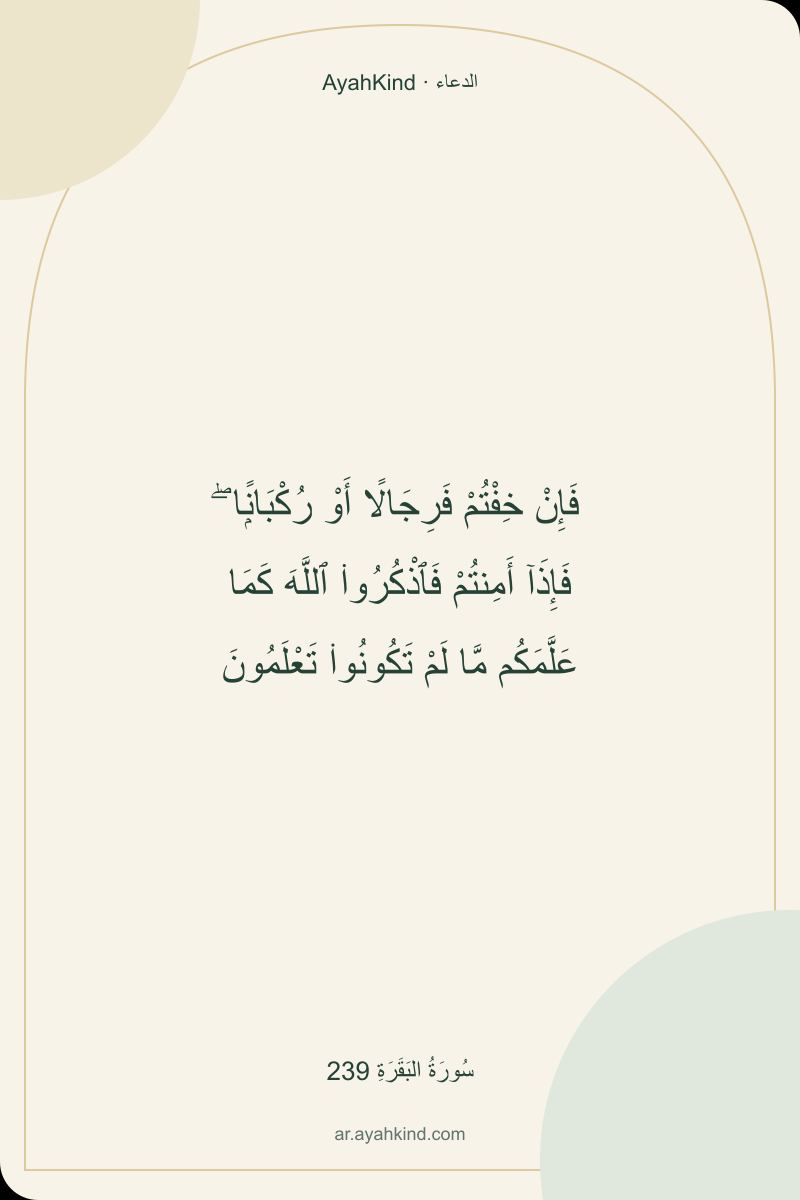 AyahKind · الدعاء
فَإِنْ خِفْتُمْ فَرِجَالًا أَوْ رُكْبَانًۭا ۖ
فَإِذَآ أَمِنتُمْ فَٱذْكُرُوا۟ ٱللَّهَ كَمَا
عَلَّمَكُم مَّا لَمْ تَكُونُوا۟ تَعْلَمُونَ
سُورَةُ البَقَرَةِ 239
ar.ayahkind.com